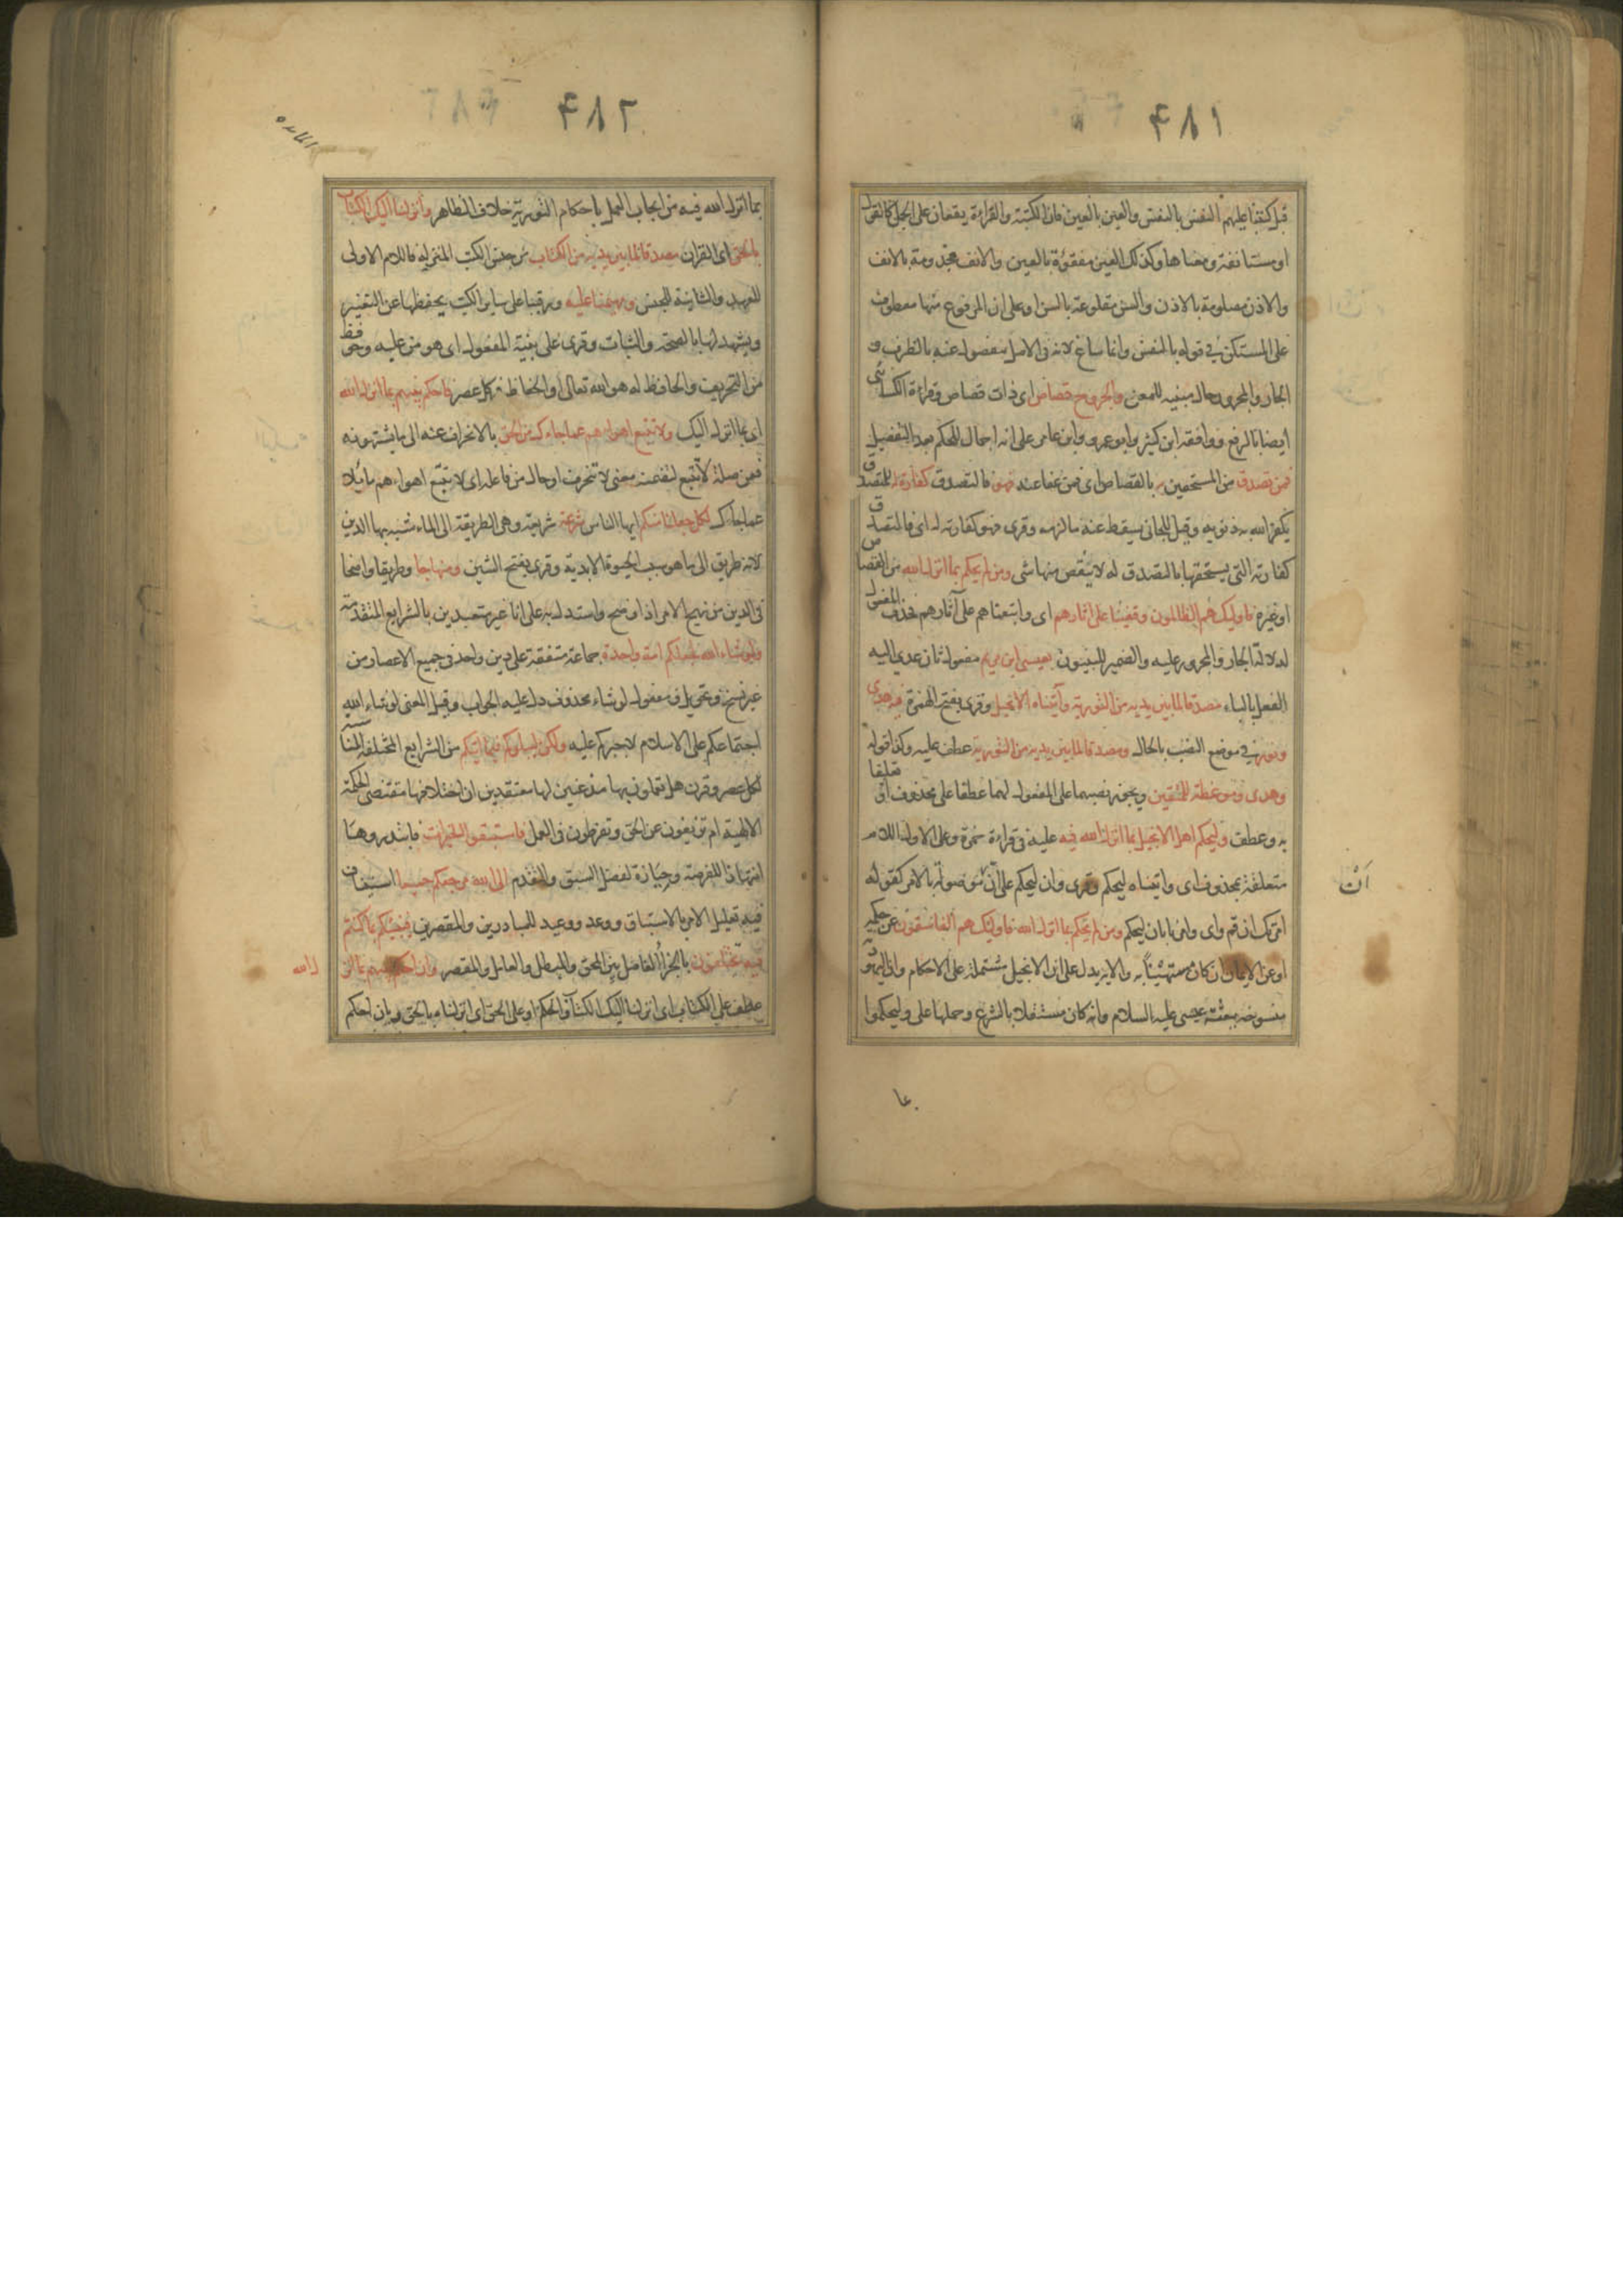 ٤٨١
قيل كتبنا عليهم النفس بالنفس والعين بالعين فان الكتبة والقراءة يقعان على الجمل كالقول
او مستانفة ومعناها وكذلك العين مفقوءة بالعين والانف مجدومة بالانف
والاذن مصلومة بالاذن والسن مقلوعة بالسن او على ان المرفوع منها معطوف
على المستكن في قوله بالنفس وانما ساغ لانه في الاصل مفصول عنه بالظرف و
الجار والمجرور حال مبينه للمعنى والجروح قصاص اى ذات قصاص وقراءة الكسائى
ايضا بالرفع ووافقه ابن كثير وابو عمرو وابن عامر على انه اجمال للحكم بعد التفصيل
فمن تصدق من المستحقين به بالقصاص اى فمن عفا عنه فهو فالتصدق كفارة له للمتصدق
يكفر الله به ذنوبه وقيل للجانى يسقط عنه ما لزمه وقرى فهو كفارته له اى فالمتصدق
كفارته التى يستحقها بالتصدق له لا ينقص منها شى ومن لم يحكم بما انزل الله من القصاص
او غيره فاولئك هم الظالمون وقفينا على اثارهم اى واتبعناهم على آثارهم فحذف المفعول
لدلالة الجار والمجرور عليه والضمير للنبيون بعيسى ابن مريم مفعول ثان عدى اليه
الفعل بالباء مصدقا لما بين يديه من التورية وآتيناه الانجيل وقرى بفتح الهمزة فيه هدى
ونور في موضع النصب بالحال ومصدقا لما بين يديه من التورية عطف عليه وكذا قوله
وهدى وموعظة للمتقين ويجوز نصبهما على المفعول لهما عطفا على محذوف او تعليقا
به وعطف وليحكم اهل الانجيل بما انزل الله فيه عليه في قراءة حمزة وعلى الاول اللام
متعلقة بمحذوف اى واتيناه ليحكم وقرى وان ليحكم على ان موصولة بالامر كقوله
امرتك ان قم واى وامرنا بان ليحكم ومن لم يحكم بما انزل الله فاولئك هم الفاسقون عن حكمه
او عن الايمان ان كان مستهينا به والاية يدل على ان الانجيل مشتملة على الاحكام وان اليهودية
منسوخة ببعثة عيسى عليه السلام وانه كان مستقلا بالشرع وحملها على وليحكموا
اَنّ
٤٨٢
المائده
بما انزل الله فيه من ايجاب العمل باحكام التورية خلاف الظاهر وانزلنا اليك الكتاب
بالحق اى القران مصدقا لما بين يديه من الكتاب من جنس الكتب المنزلة فاللام الاولى
للعهد والثانية للجنس ومهيمنا عليه ورقيبا على ساير الكتب يحفظها عن التغيير
ويشهد لها بالصحة والثبات وقرى على بنية المفعول اى هو من عليه وحوفظ
من التحريف والحافظ له هو الله تعالى او الحفاظ في كل عصر فاحكم بينهم بما انزل الله
اى بما انزل اليك ولا تتبع اهواءهم عما جاءك من الحق بالانحراف عنه الى ما يشتهونه
فعن صلة لا تتبع لتضمنه معنى لا تنحرف او حال من فاعله اى لا تتبع اهواءهم مايلا
عما جاءك لكل جعلنا منكم ايها الناس شرعة شريعة وهى الطريقة الى الماء شبه بها الدين
لانه طريق الى ما هو سبب الحيوة الابدية وقرى بفتح الشين ومنهاجا وطريقا واضحا
فى الدين من نهج الامر اذا وضح واستدل به على انا غير متعبدين بالشرايع المتقدمة
ولو شاء الله لجعلكم امة واحدة جماعة متفقة على دين واحد فى جميع الاعصار من
غير نسخ وتحويل ومفعول لو شاء محذوف دل عليه الجواب وقيل المعنى لو شاء الله
اجتماعكم على الاسلام لاجبركم عليه ولكن ليبلوكم فيما اتيكم من الشرايع المختلفة المناسبة
لكل عصر وقرن هل تعملون بها مذعنين لها معتقدين ان اختلافها مقتضى الحكمة
الالهية ام تزيغون عن الحق وتفرطون فى العمل فاستبقوا الخيرات فابتدروها
انتهازا للفرصة وحيازة لفضل السبق والتقدم الى الله مرجعكم جميعا استيناف
فيه تعليل الامر بالاستباق ووعد ووعيد للمبادرين والمقصرين فينبئكم بما كنتم
فيه تختلفون بالجزاء الفاصل بين المحق والمبطل والعامل والمقصر وان احكم بينهم بما انز
ل الله
عطف على الكتاب اى انزلنا اليك الكتاب والحكم او على الحق اى انزلناه بالحق وبان احكم